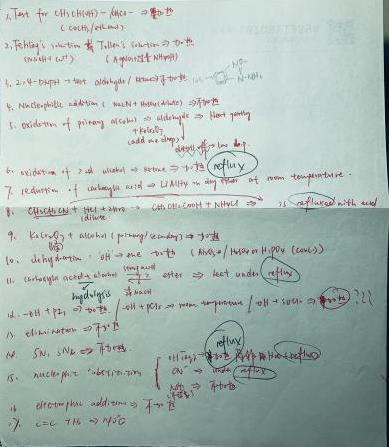 1. Test for CH3CH(OH)- / CH3CO- ⇒ 加热
2. Fehling's solution 和 Tollen's solution ⇒ 加热
(NaOH + Cu²⁺)
3. 2,4-DNPH → test aldehyde / ketone ⇒ 不加热
4. Nucleophilic addition (NaCN + H2SO4(dilute)) ⇒ 不加热
5. oxidation of primary alcohol ⇒ aldehyde ⇒ Heat gently
+ K2Cr2O7
(add one drop)
6. oxidation of 2nd alcohol ⇒ ketone ⇒ reflux
7. reduction of carboxylic acid ⇒ LiAlH4 in dry ether at room temperature.
8. CH3CH2CN + HCl + 2H2O → CH3CH2COOH + NH4Cl ⇒ is refluxed with acid
(dilute)
9. K2Cr2O7 + alcohol (primary/secondary) ⇒ 加热
10. dehydration: OH → ene 加热 (Al2O3 / H2SO4 or H3PO4 (conc))
11. carboxylic acid + alcohol ester ⇒ heat under reflux
hydrolysis NaOH
12. -OH + PCl3 ⇒ 加热 / -OH + PCl5 ⇒ room temperature / -OH + SOCl2 ⇒ ???
13. elimination ⇒ 加热
14. SN1, SN2 ⇒ 不加热
15. nucleophilic substitution OH⁻(aq) reflux
CN⁻ ⇒ under reflux
NH3 ⇒ 不加热
16. electrophilic addition ⇒ 不加热
17. C=C + H2 ⇒